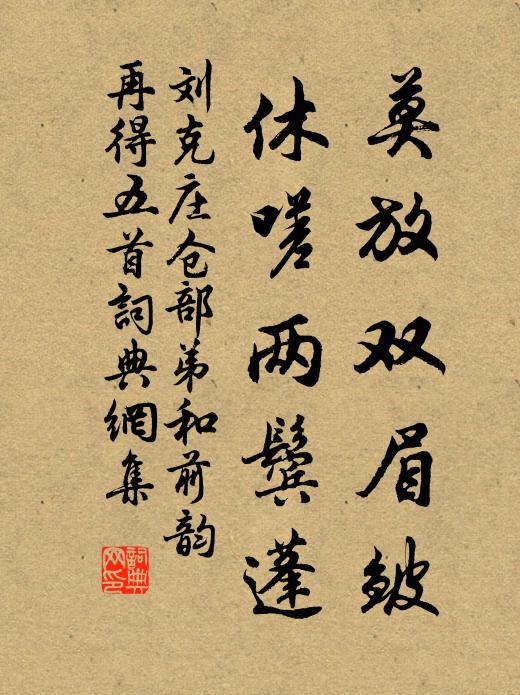 莫放双眉皱
休嗟两鬓蓬
刘克庄仓部弟和前韵
再得五首詞典網集
詞典网印